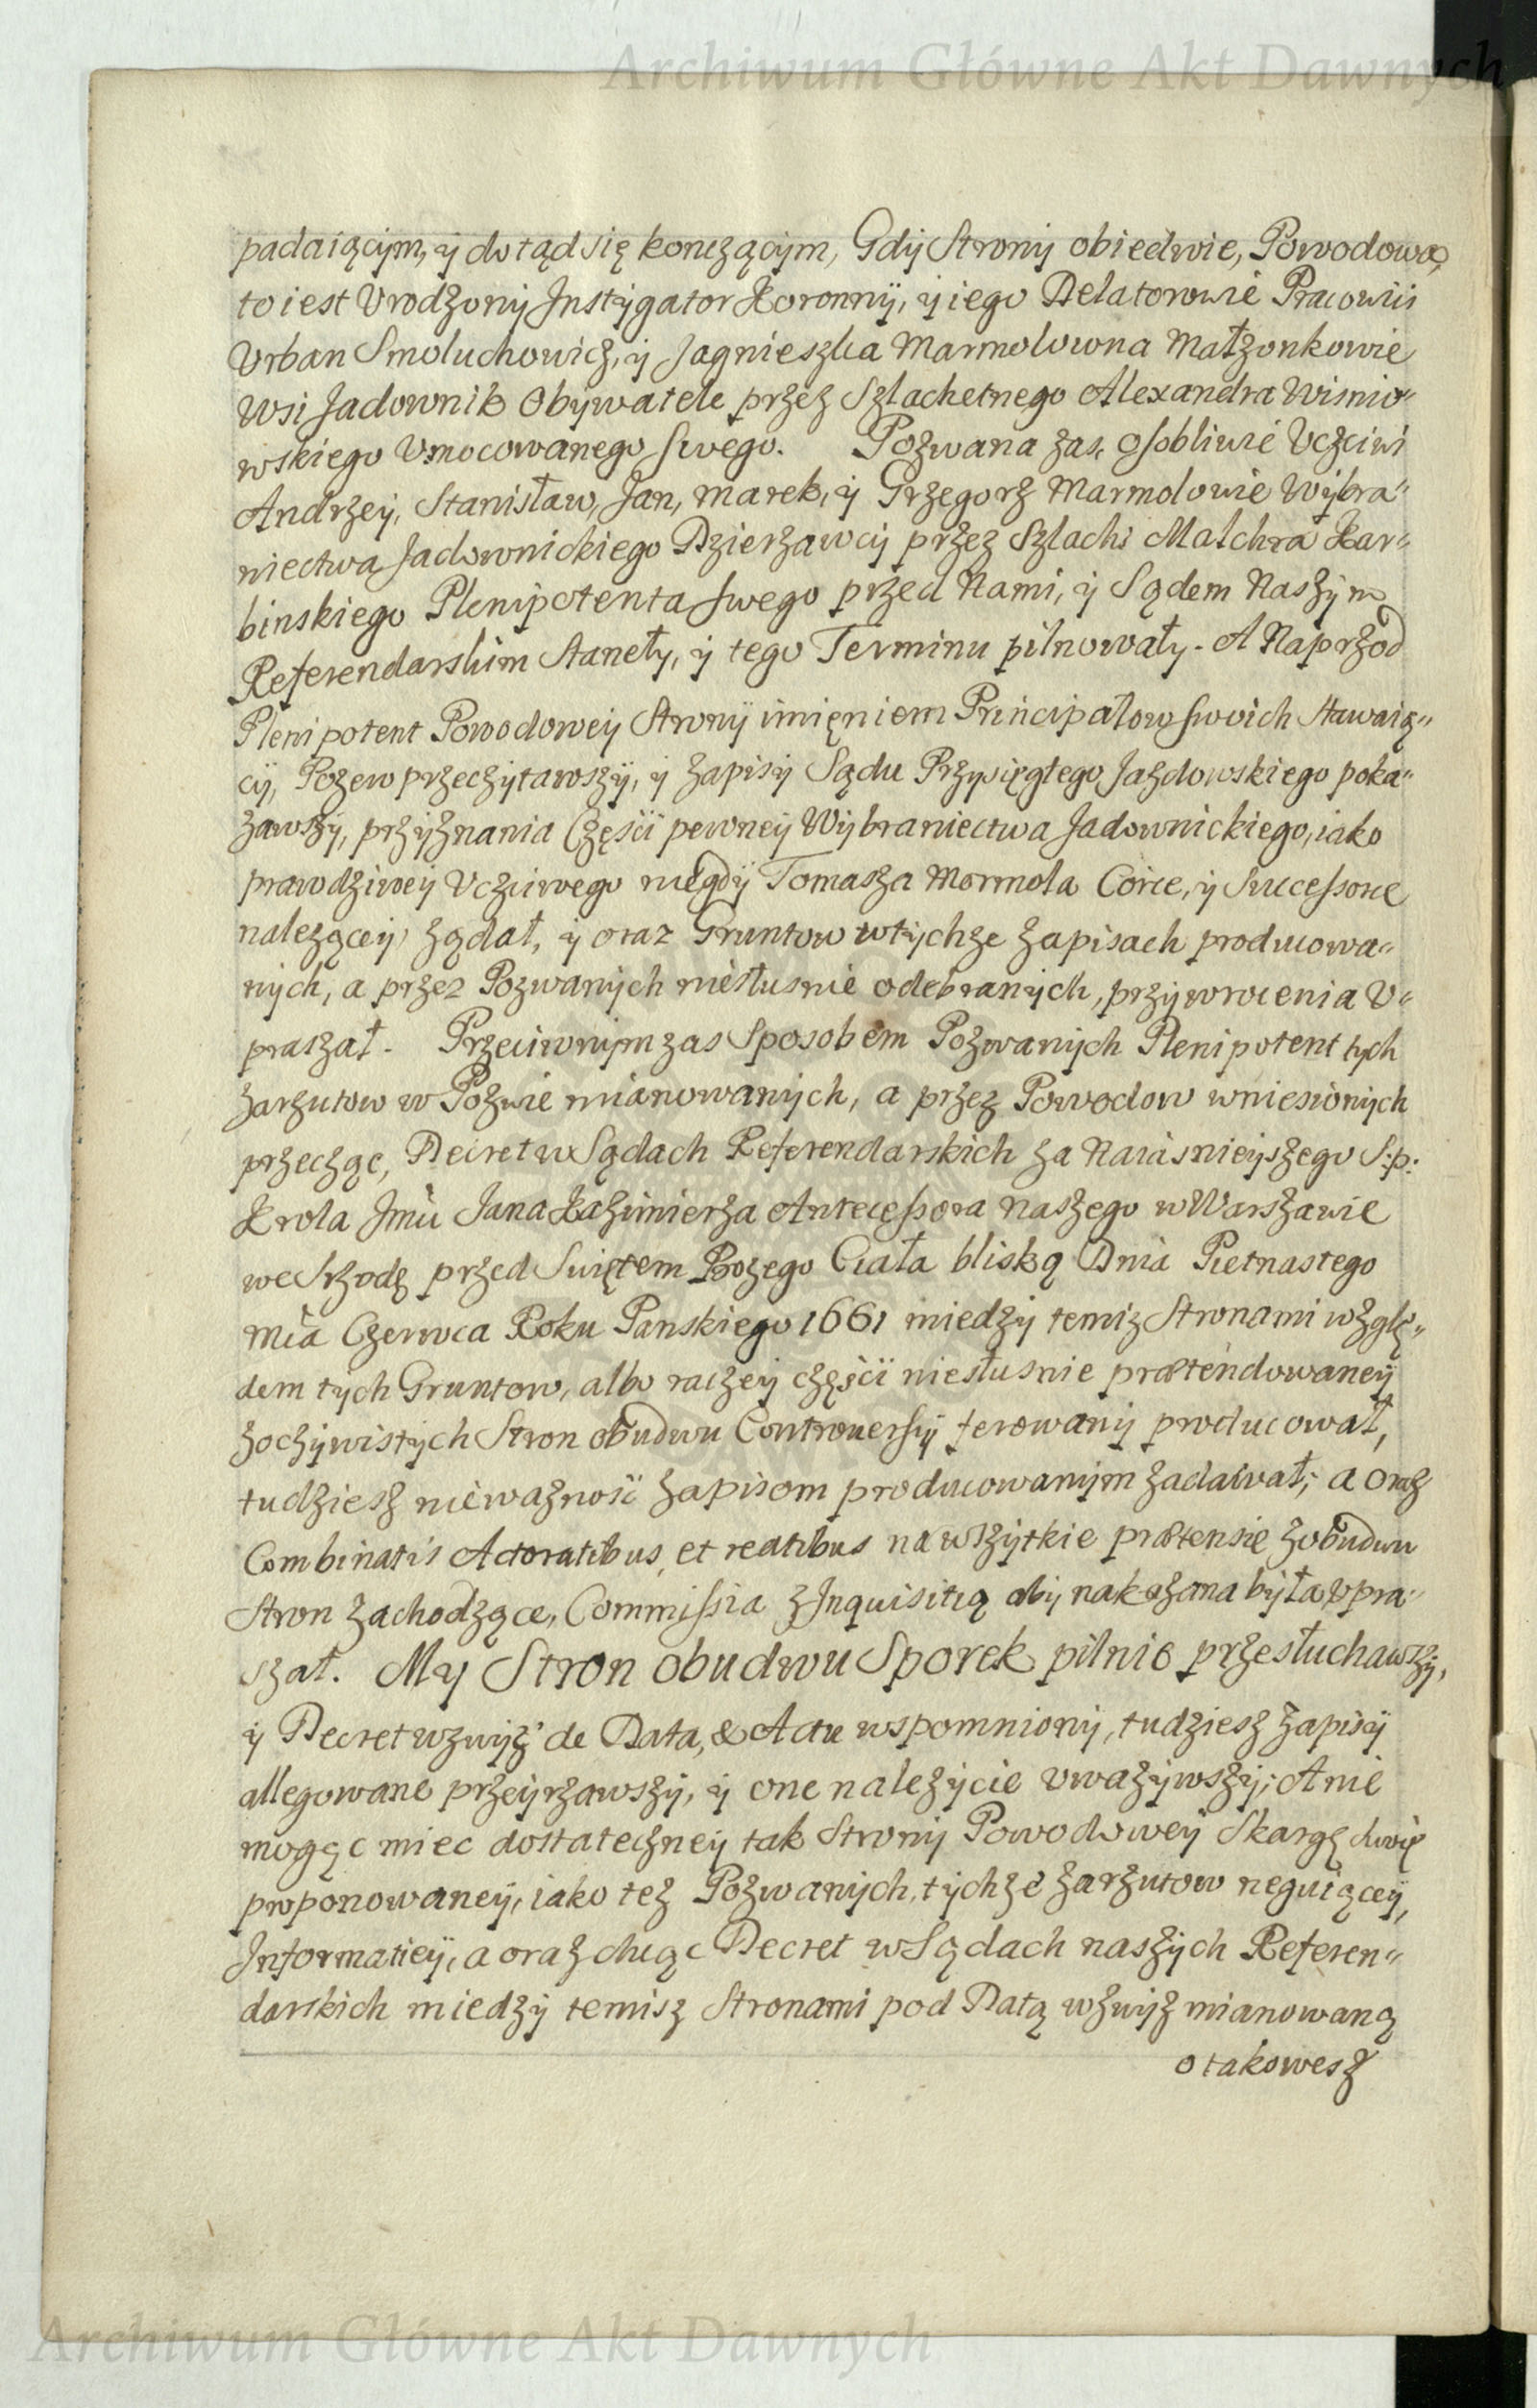 Archiwum Główne Akt Dawnych
padaiącym, y dotąd się konczącym, Gdy Strony obiedwie, Powodowa,
to iest Vrodzony Instygator Koronny, y iego Delatorowie Pracowici
Vrban Smoluchowicz, y Jagnieszka Marmolowna Małzonkowie
Wsi Jadownik Obywatele przez Szlachetnego Alexandra Wisnio-
wskiego Vmocowanego swego. Pozwana zas, osobliwie Vczciwi
Andrzey, Stanisław, Jan, Marek, y Grzegorz Marmolowie Wybra-
niectwa Jadownickiego Dzierzawcy przez Szlach: Malchra Kar-
binskiego Plenipotenta swego przed Nami, y Sądem Naszym
Referendarskim Stanęły, y tego Terminu pilnowały. A Naprzod
Plenipotent Powodowey Strony imięniem Principałow swoich Stawaią-
cy, Pozew przeczytawszy, y zapisy Sądu Przysięgłego Jazdowskiego poka-
zawszy, przyznania Częsci pewney Wybraniectwa Jadownickiego, iako
prawdziwey Vczciwego niegdy Tomasza Mormola Corce, y Successorce
nalezącey ządał, y oraz Gruntow wtychze zapisach producowa-
nych, a przez Pozwanych niesłusnie odebranych, przywrocenia V-
praszał. Przeciwnym zas Sposobem Pozwanych Plenipotent tych
zarzutow w Pozwie mianowanych, a przez Powodow wniesionych
przecząc, Decret w Sądach Referendarskich za Naiasnieyszego S:p:
Krola Jmci Jana Kazimierza Antecessora Naszego w Warszawie
we Srzodę przed Swiętem Bozego Ciała bliską Dnia Pietnastego
Mca Czerwca Roku Panskiego 1661 miedzy temiz Stronami wzglę-
dem tych Gruntow, albo raczey częsci niesłusnie prætendowaney
zoczywistych Stron obudwu Controuersyi ferowany producował,
tudziesz niewaznosc zapisom producowanym zadawał; a oraz
Combinatis Actoratibus, et reatibus na wszytkie prætensie zobudwu
Stron zachodzące, Commissia z Inquisitią aby nakazana była Vpra-
szał. My Stron obudwu Sporek pilnie przesłuchawszy,
y Decret wzwyz de Data, & Actu wspomniony, tudziesz zapisy
allegowane przeyrzawszy, y one nalezycie vwazywszy; A nie
mogąc miec dostateczney tak Strony Powodowey Skargę swoię
proponowaney, iako tez Pozwanych, tychze zarzutow neguiącey,
Informatiey, a oraz chcąc Decret w Sądach naszych Referen-
darskich miedzy temisz Stronami pod Datą wzwyz mianowaną
otakowesz
Archiwum Główne Akt Dawnych